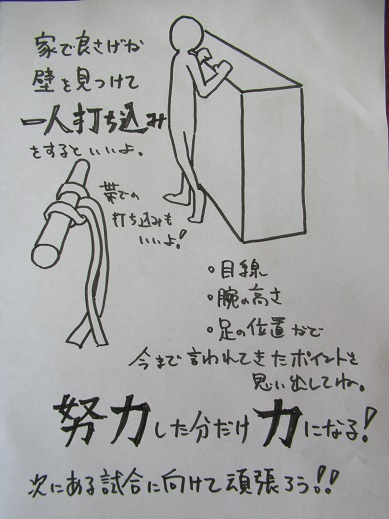 家で良さげな
壁を見つけて
一人打ち込み
をするといいよ。
帯での
打ち込みも
いいよ!
・目線
・腕の高さ
・足の位置などで
今まで言われてきたポイントを
思い出してね。
努力した分だけ力になる!
次にある試合に向けて頑張ろう!!